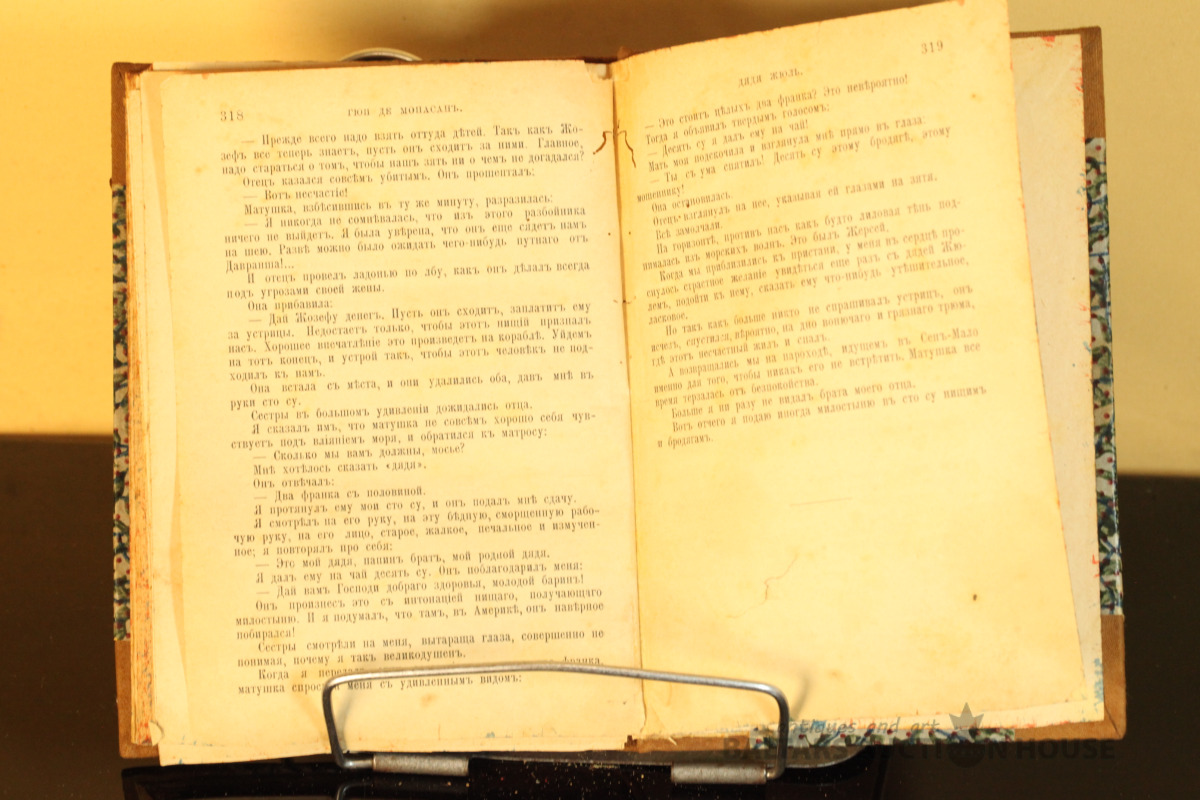 318
ГЮИ ДЕ МОПАСАНЪ.
— Прежде всего надо взять оттуда дѣтей. Такъ какъ Жо-
зефъ все теперь знаетъ, пусть онъ сходитъ за ними. Главное,
надо стараться о томъ, чтобы нашъ зять ни о чемъ не догадался?
Отецъ казался совсѣмъ убитымъ. Онъ прошепталъ:
— Вотъ несчастіе!
Матушка, взбѣсившись въ ту же минуту, разразилась:
— Я никогда не сомнѣвалась, что изъ этого разбойника
ничего не выйдетъ. Я была увѣрена, что онъ еще сядетъ намъ
на шею. Развѣ можно было ожидать чего-нибудь путнаго отъ
Давранша!...
И отецъ провелъ ладонью по лбу, какъ онъ дѣлалъ всегда
подъ угрозами своей жены.
Она прибавила:
— Дай Жозефу денегъ. Пусть онъ сходитъ, заплатитъ ему
за устрицы. Недостаетъ только, чтобы этотъ нищій призналъ
насъ. Хорошее впечатлѣніе это произведетъ на кораблѣ. Уйдемъ
на тотъ конецъ, и устрой такъ, чтобы этотъ человѣкъ не под-
ходилъ къ намъ.
Она встала съ мѣста, и они удалились оба, давъ мнѣ въ
руки сто су.
Сестры въ большомъ удивленіи дожидались отца.
Я сказалъ имъ, что матушка не совсѣмъ хорошо себя чув-
ствуетъ подъ вліяніемъ моря, и обратился къ матросу:
— Сколько мы вамъ должны, мосье?
Мнѣ хотѣлось сказать «дядя».
Онъ отвѣчалъ:
— Два франка съ половиной.
Я протянулъ ему мои сто су, и онъ подалъ мнѣ сдачу.
Я смотрѣлъ на его руку, на эту бѣдную, сморщенную рабо-
чую руку, на его лицо, старое, жалкое, печальное и измучен-
ное; я повторялъ про себя:
— Это мой дядя, папинъ братъ, мой родной дядя.
Я далъ ему на чай десять су. Онъ поблагодарилъ меня:
— Дай вамъ Господи добраго здоровья, молодой баринъ!
Онъ произнесъ это съ интонаціей нищаго, получающаго
милостыню. И я подумалъ, что тамъ, въ Америкѣ, онъ навѣрное
побирался!
Сестры смотрѣли на меня, вытараща глаза, совершенно не
понимая, почему я такъ великодушенъ.
Когда я франка,
матушка меня съ удивленнымъ видомъ:
319
ДЯДЯ ЖЮЛЬ.
— Это стоитъ цѣлыхъ два франка? Это невѣроятно!
Тогда я объявилъ твердымъ голосомъ:
— Десять су я далъ ему на чай!
Мать моя подскочила и взглянула мнѣ прямо въ глаза:
— Ты съ ума спятилъ! Десять су этому бродягѣ, этому
мошеннику!
Она остановилась.
Отецъ взглянулъ на нее, указывая ей глазами на зятя.
Всѣ замолчали.
На горизонтѣ, противъ насъ какъ будто лиловая тѣнь под-
нималась изъ морскихъ волнъ. Это былъ Жерсей.
Когда мы приблизились къ пристани, у меня въ сердцѣ про-
снулось страстное желаніе увидѣться еще разъ съ дядей Жю-
лемъ, подойти къ нему, сказать ему что-нибудь утѣшительное,
ласковое.
Но такъ какъ больше никто не спрашивалъ устрицъ, онъ
исчезъ, спустился, вѣроятно, на дно вонючаго и грязнаго трюма,
гдѣ этотъ несчастный жилъ и спалъ.
А возвращались мы на пароходѣ, идущемъ въ Сенъ-Мало
именно для того, чтобы никакъ его не встрѣтить. Матушка все
время терзалась отъ безпокойства.
Больше я ни разу не видалъ брата моего отца.
Вотъ отчего я подаю иногда милостыню въ сто су нищимъ
и бродягамъ.
antiques and art
AUCTION HOUSE